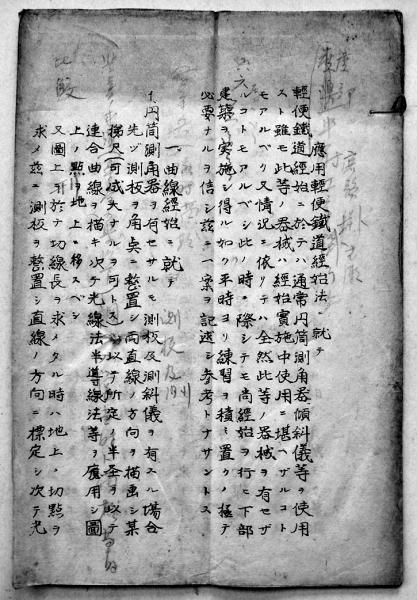 應用輕便鐵道經始法ニ就テ
輕便鐵道經始ニ於テハ通常円筒測角器傾斜儀等ヲ使用
スト雖モ此等ノ器械ハ經始實施中使用ニ堪ヘザルコト
モアルベク又情況ニ依リテハ全然此等ノ器械ヲ有セザ
ルコトモアルベシ此ノ時ニ際シテモ尚經始ヲ行ヒ下部
建築ヲ実施シ得ル如ク平時ヨリ練習ヲ積ミ置クノ極テ
必要ナルヲ信シ茲ニ一案ヲ記述シ参考トナサントス
一、曲線經始ニ就テ
1、円筒測角器ヲ有セサルモ測板及測斜儀ヲ有スル場合
先ヅ測板ヲ角点ニ整置シ両直線ノ方向ヲ描画シ某
梯尺(可成大ナルヲ可トス)ヲ以テ所定ノ半圣ヲ以テ
連合曲線ヲ描キ次テ光線法半導線法等ヲ應用シ圖
上ノ點ヲ地上ニ移スベシ
又圖上ニ於テ切線長ヲ求メタル時ハ地上ノ切點ヲ
求メ茲ニ測板ヲ整置シ直線ノ方向ニ標定シ次テ光
比較